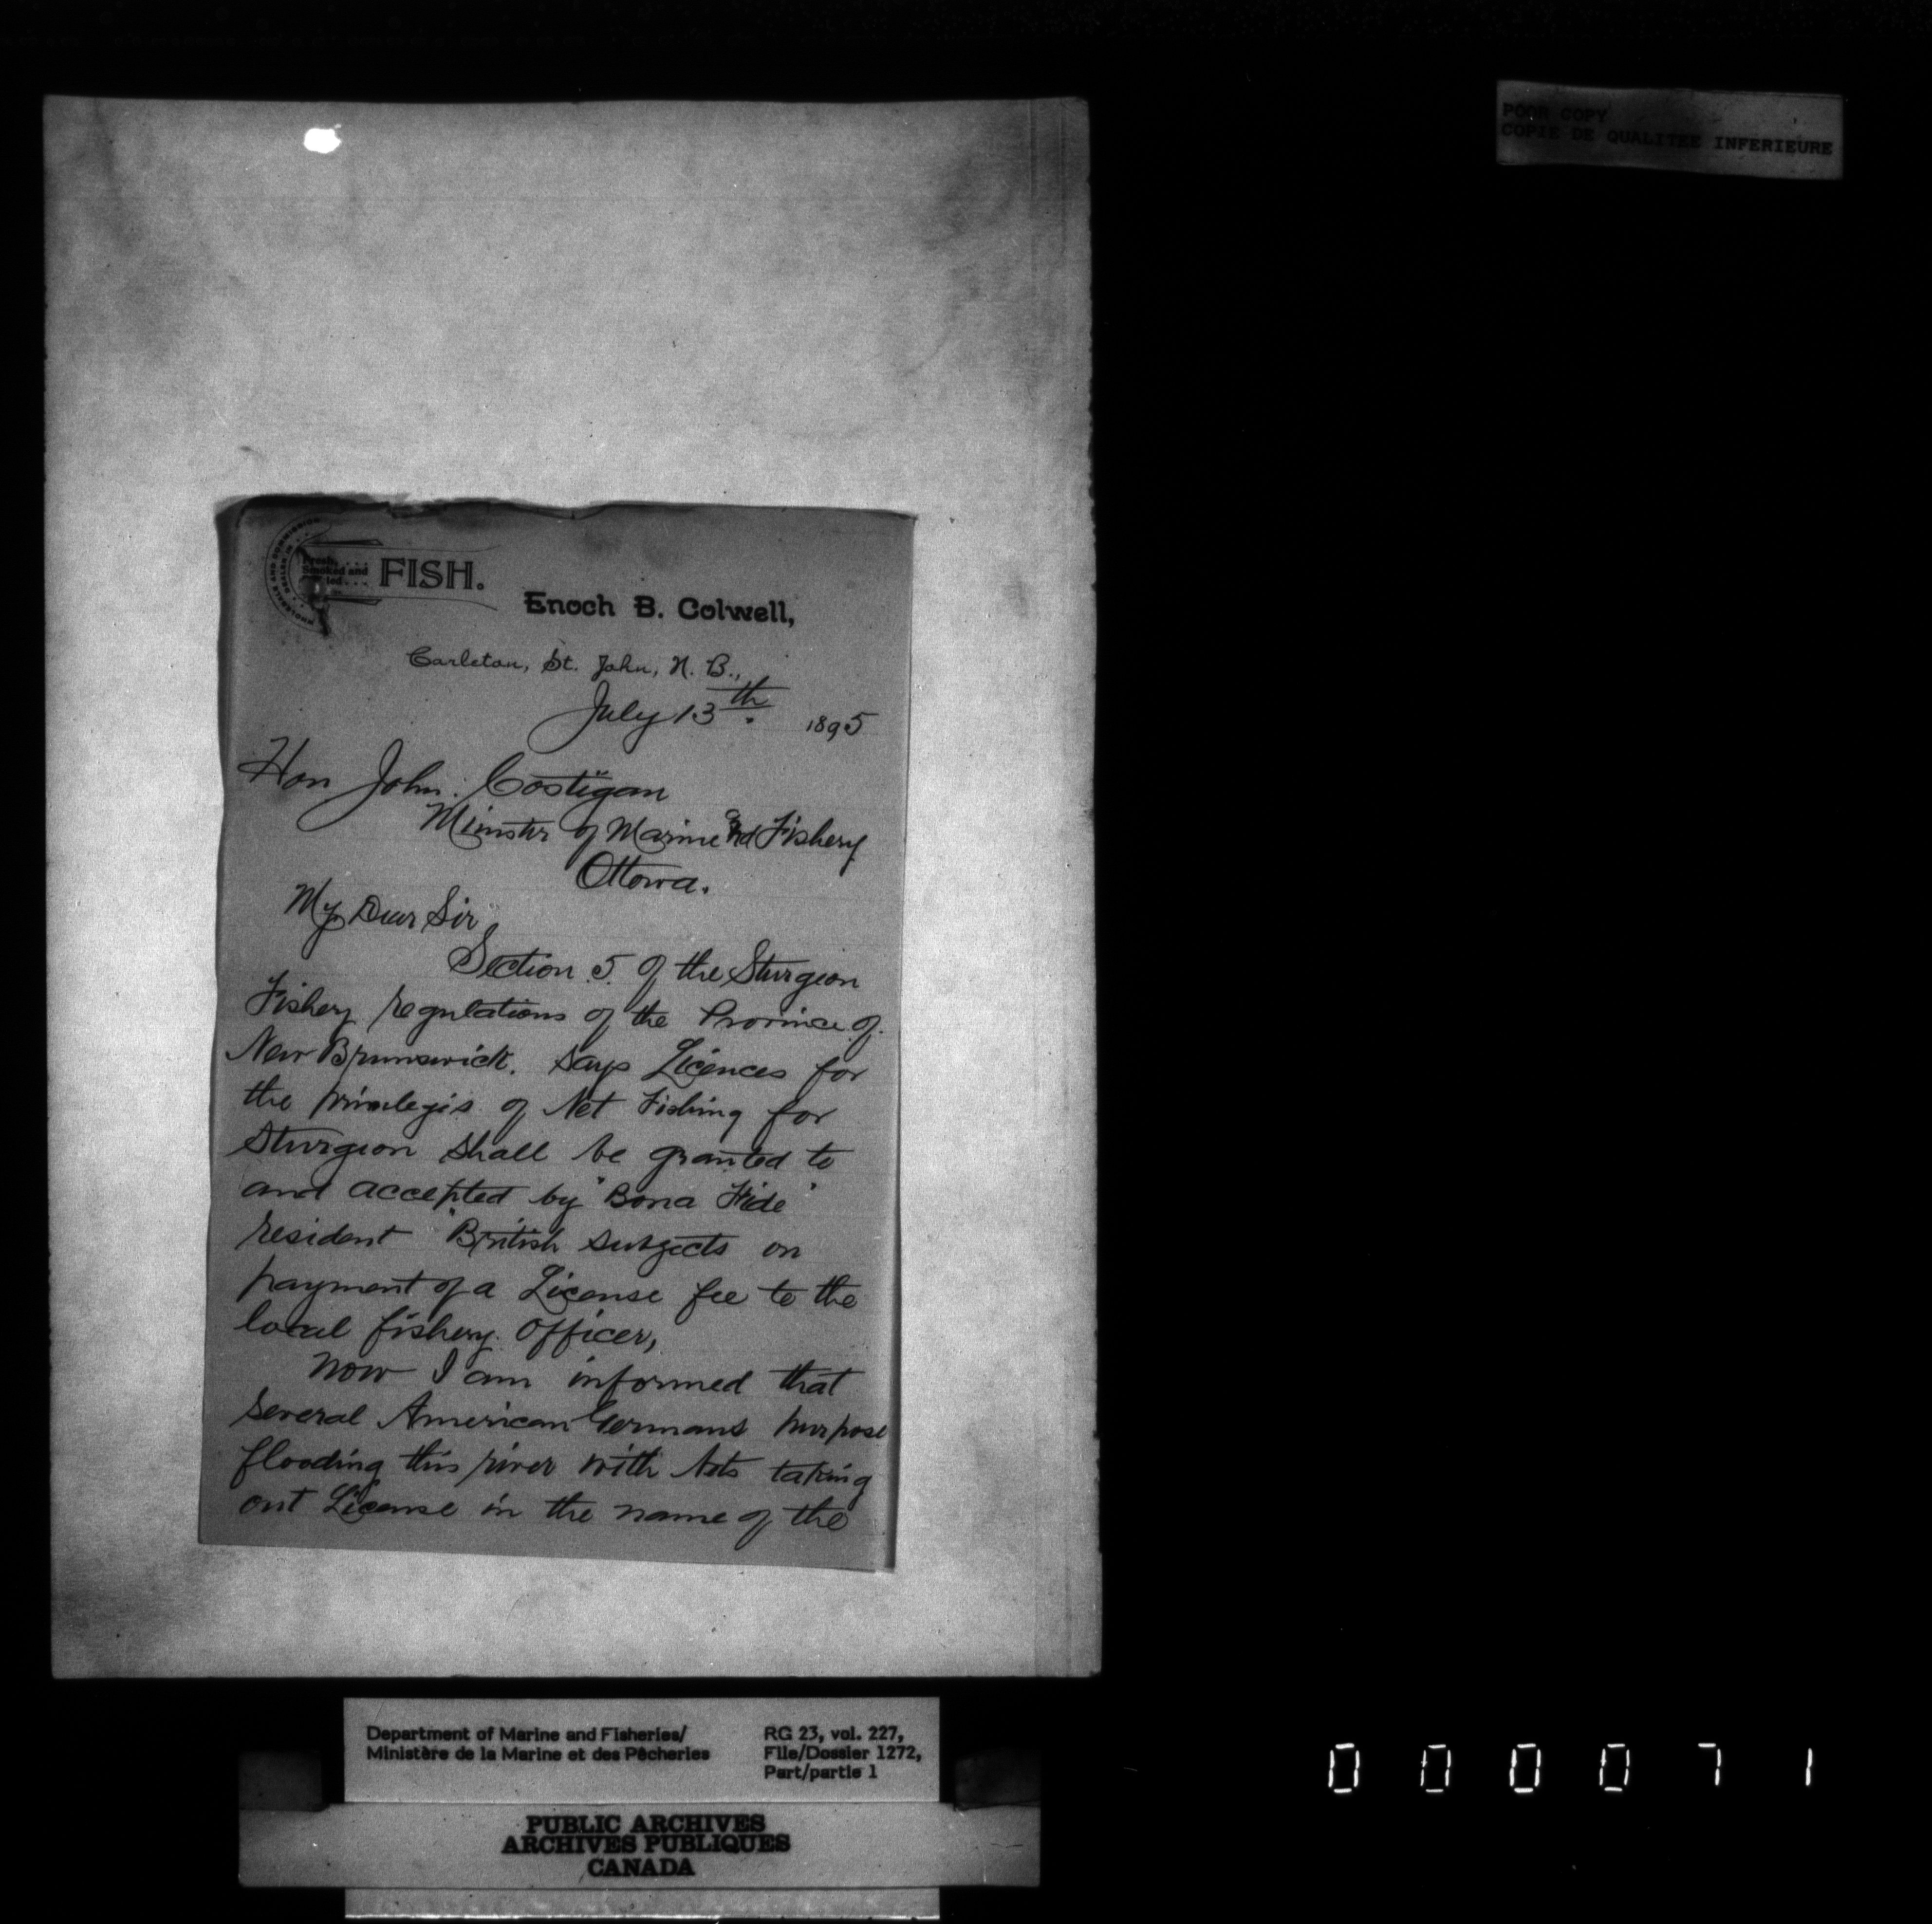 POOR COPY
COPIE DE QUALITEE INFERIEURE
WHOLESALE AND COMMISSION
DEALER IN
Fresh, . . .
Smoked and
led . . .
FISH.
Enoch B. Colwell,
Carleton, St. John, N. B.,
July 13th. 1895
Hon John. Costigan
Minister of Marine and Fishery
Ottowa.
My Dear Sir
Section 5 of the Sturgeon
Fishery regulations of the Province of
New Brunswick. says Licences for
the privilegis of Net Fishing for
Sturgeon shall be granted to
and accepted by "Bona Fide"
resident "British subjects on
payment of a License fee to the
local fishery Officer,
Now I am informed that
several American Germans purpose
flooding this river with Nets taking
out License in the name of the
Department of Marine and Fisheries/
Ministère de la Marine et des Pêcheries
RG 23, vol. 227,
File/Dossier 1272,
Part/partie 1
PUBLIC ARCHIVES
ARCHIVES PUBLIQUES
CANADA
000071